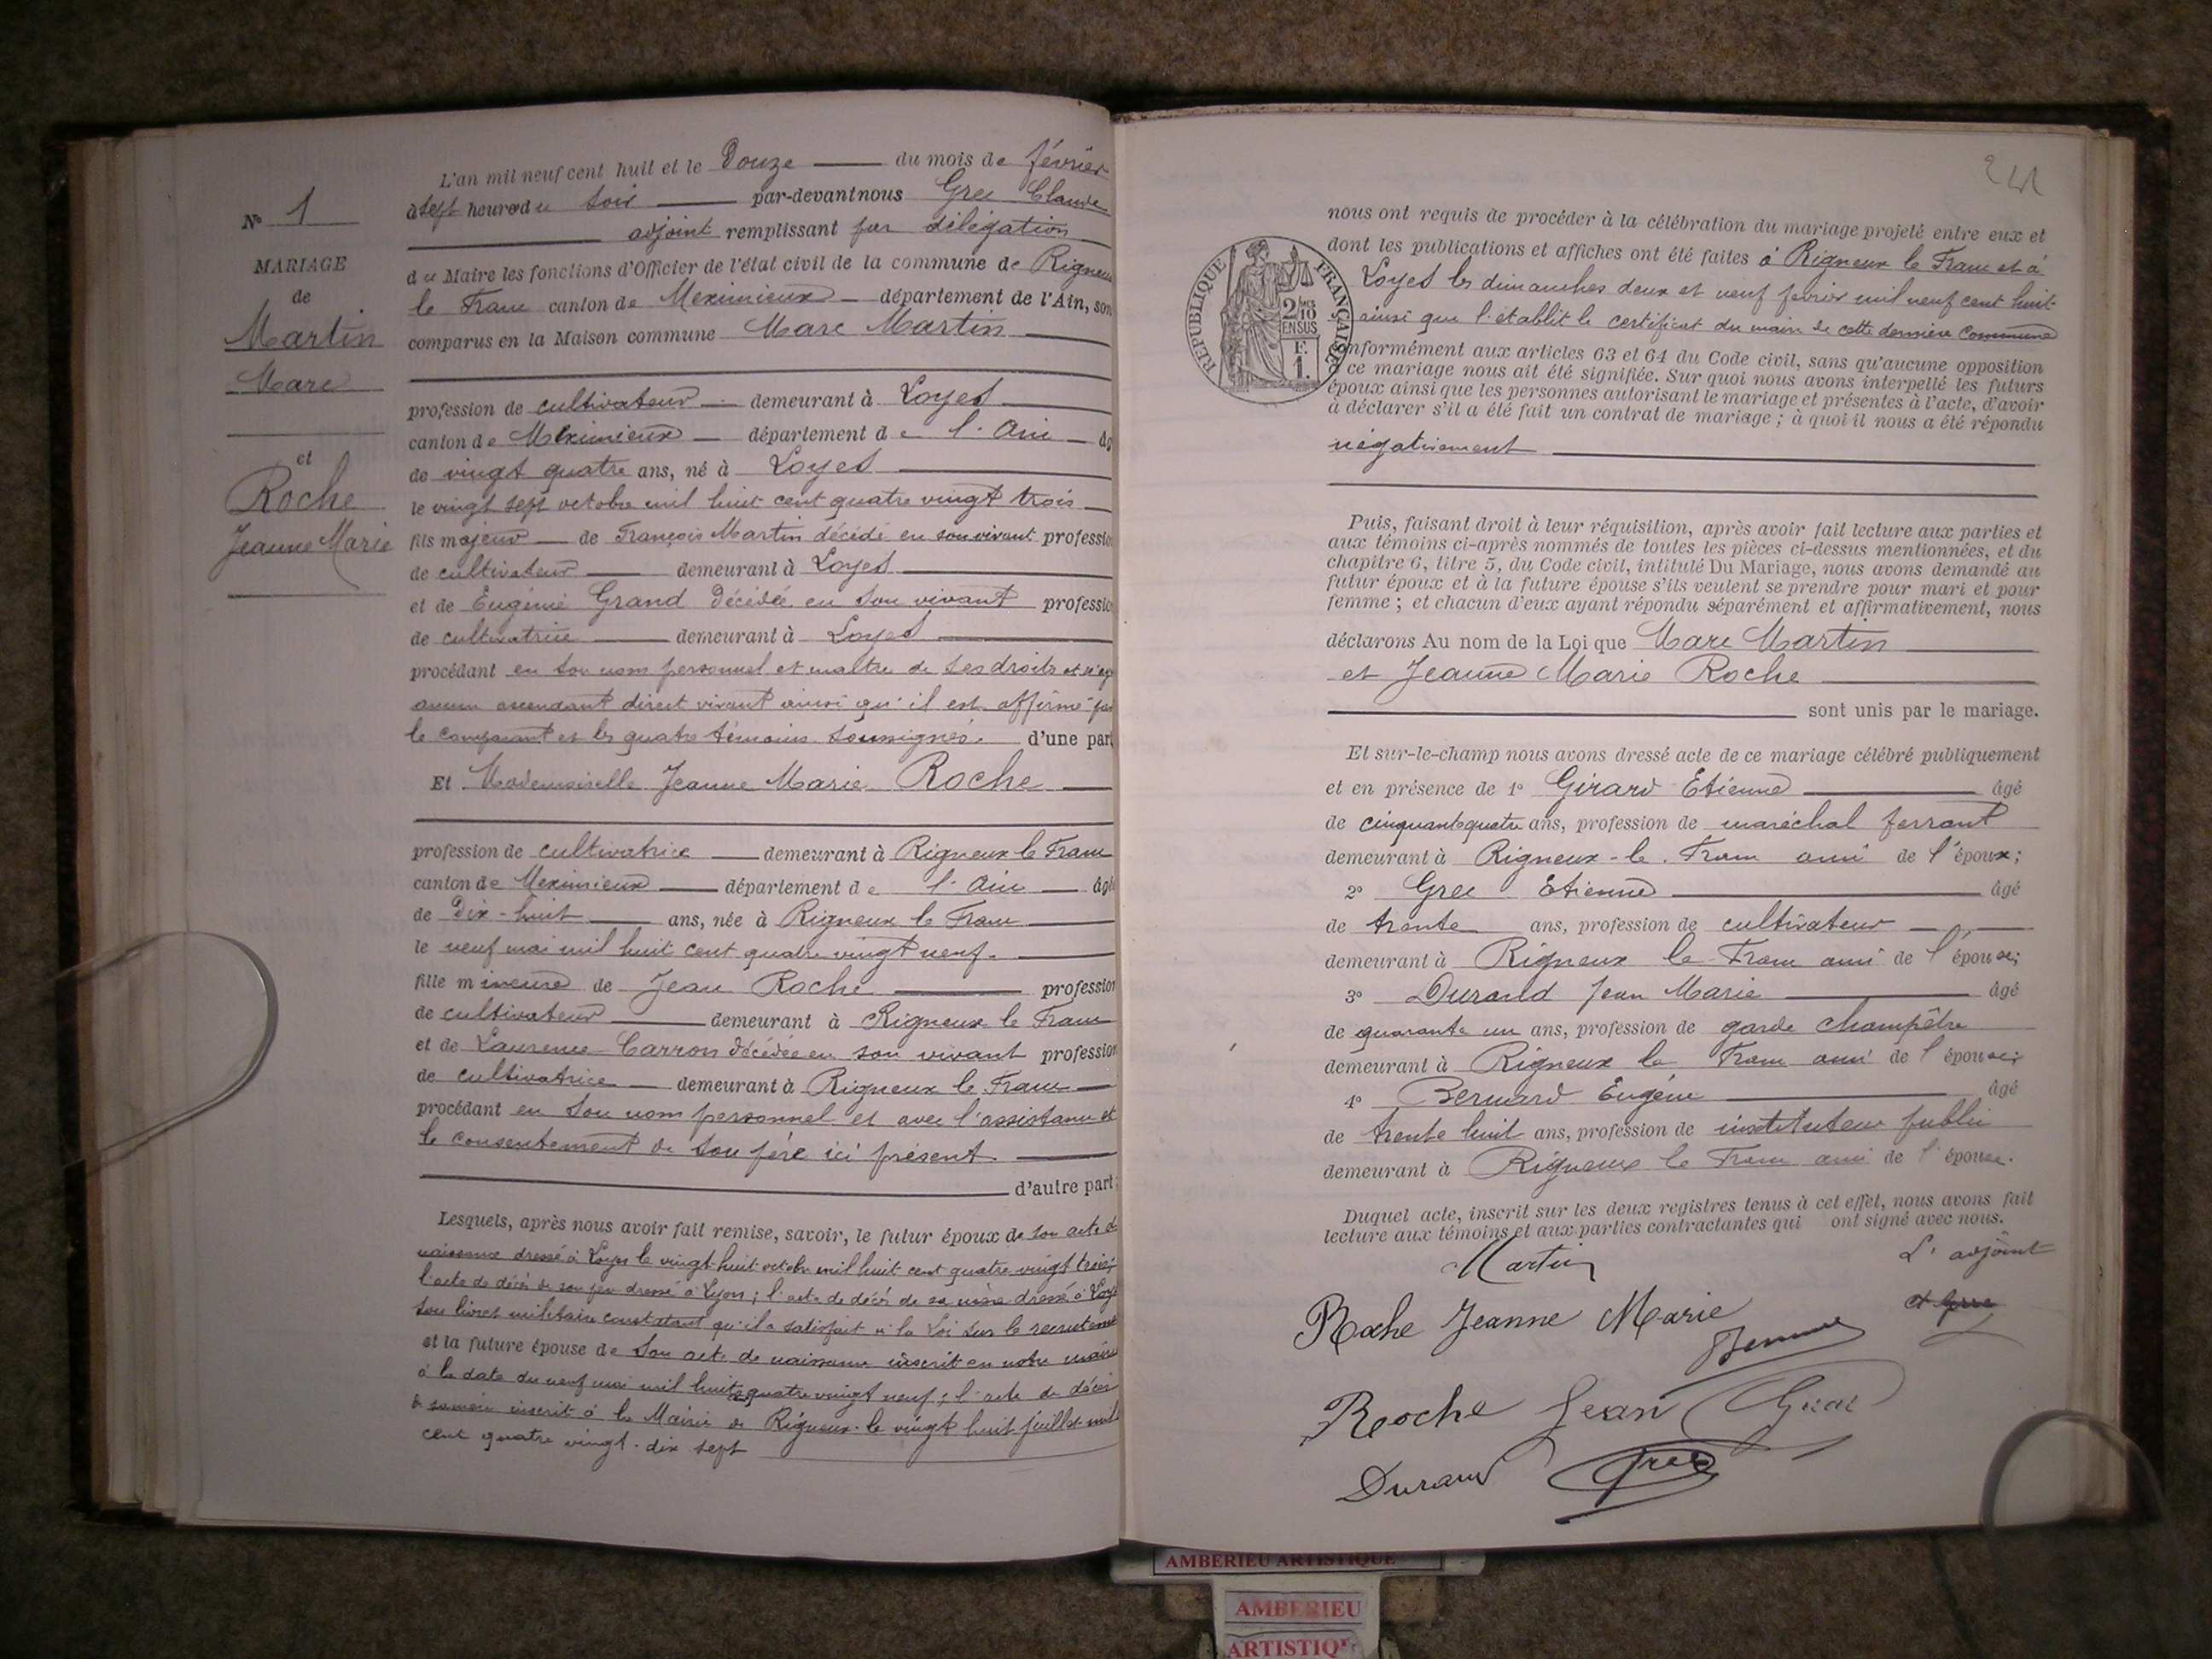 N° 1
MARIAGE
de
Martin
Marc
et
Roche
Jeanne Marie
L'an mil neuf cent huit et le Douze du mois de février
à sept heures du soir par-devant nous Grec Claude
adjoint remplissant par délégation
du Maire les fonctions d'Officier de l'état civil de la commune de Rigneux
le Franc canton de Meximieux département de l'Ain, son
comparus en la Maison commune Marc Martin
profession de cultivateur demeurant à Loyes
canton de Meximieux département de l'Ain âg
de vingt quatre ans, né à Loyes
le vingt sept octobre mil huit cent quatre vingt trois
fils majeur de François Martin décédé en son vivant professio
de cultivateur demeurant à Loyes
et de Eugénie Grand décédée en son vivant professio
de cultivatrice demeurant à Loyes
procédant en son nom personnel et maître de ses droits et n'ay
aucun ascendant direct vivant ainsi qu'il est affirmé par
le comparant et les quatre témoins soussignés. d'une part
Et Mademoiselle Jeanne Marie Roche
profession de cultivatrice demeurant à Rigneux le Franc
canton de Meximieux département de l'Ain âgé
de Dix-huit ans, née à Rigneux le Franc
le neuf mai mil huit cent quatre vingt neuf.
fille mineure de Jean Roche profession
de cultivateur demeurant à Rigneux le Franc
et de Laurence Carron décédée en son vivant profession
de cultivatrice demeurant à Rigneux le Franc
procédant en son nom personnel et avec l'assistance et
le consentement de son père ici présent
d'autre part;
Lesquels, après nous avoir fait remise, savoir, le futur époux de son acte de
naissance dressé à Loyes le vingt-huit octobre mil huit cent quatre vingt trois;
l'acte de décès de son père dressé à Lyon; l'acte de décès de sa mère dressé à Loyes
son livret militaire constatant qu'il a satisfait à la Loi sur le recrutement
et la future épouse de son acte de naissance inscrit en notre mairie
à la date du neuf mai mil huit cent quatre vingt neuf; l'acte de décès
de sa mère inscrit à la Mairie de Rigneux le vingt huit juillet mil
cent quatre vingt-dix sept
RÉPUBLIQUE FRANÇAISE
2/10
EN SUS
F.
1.
nous ont requis de procéder à la célébration du mariage projeté entre eux et
dont les publications et affiches ont été faites à Rigneux le Franc et à
Loyes les dimanches deux et neuf février mil neuf cent huit
ainsi que l'établit le certificat du maire de cette dernière commune
conformément aux articles 63 et 64 du Code civil, sans qu'aucune opposition
à ce mariage nous ait été signifiée. Sur quoi nous avons interpellé les futurs
époux ainsi que les personnes autorisant le mariage et présentes à l'acte, d'avoir
à déclarer s'il a été fait un contrat de mariage; à quoi il nous a été répondu
négativement
Puis, faisant droit à leur réquisition, après avoir fait lecture aux parties et
aux témoins ci-après nommés de toutes les pièces ci-dessus mentionnées, et du
chapitre 6, titre 5, du Code civil, intitulé Du Mariage, nous avons demandé au
futur époux et à la future épouse s'ils veulent se prendre pour mari et pour
femme; et chacun d'eux ayant répondu séparément et affirmativement, nous
déclarons Au nom de la Loi que Marc Martin
et Jeanne Marie Roche
sont unis par le mariage.
Et sur-le-champ nous avons dressé acte de ce mariage célébré publiquement
et en présence de 1° Girard Etienne âgé
de cinquante quatre ans, profession de maréchal ferrant
demeurant à Rigneux-le-Franc ami de l'époux;
2° Grec Etienne âgé
de trente ans, profession de cultivateur
demeurant à Rigneux le Franc ami de l'épouse;
3° Durand Jean Marie âgé
de quarante un ans, profession de garde champêtre
demeurant à Rigneux le Franc ami de l'épouse;
4° Bernard Eugène âgé
de trente huit ans, profession de instituteur public
demeurant à Rigneux le Franc ami de l'épouse.
Duquel acte, inscrit sur les deux registres tenus à cet effet, nous avons fait
lecture aux témoins et aux parties contractantes qui ont signé avec nous.
Martin L'adjoint
Roche Jeanne Marie
Roche Jean
Durand Grec
AMBERIEU ARTISTIQUE
AMBERIEU
ARTISTIQU